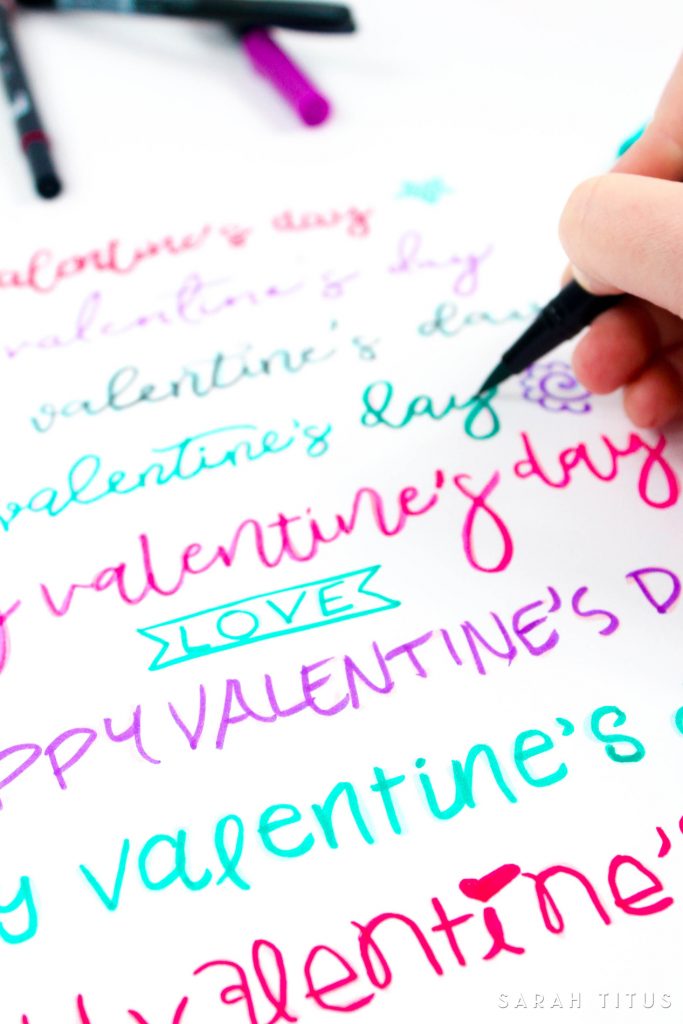 valentine's day
valentine's day
valentine's day
valentine's day
valentine's day
LOVE
PPY VALENTINE'S D
y valentine's
y valentine's
SARAH TITUS